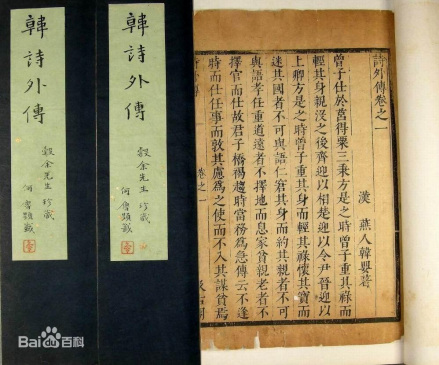 詩外傳卷之一
漢 燕人韓嬰著
曾子仕於莒得粟三秉方是之時曾子重其祿而
輕其身親沒之後齊迎以相楚迎以令尹晉迎以
上卿方是之時曾子重其身而輕其祿懷其寶而
迷其國者不可與語仁窘其身而約其親者不可
與語孝任重道遠者不擇地而息家貧親老者不
擇官而仕故君子橋褐趨時當務為急傳云不逢
時而仕任事而敦其慮為之使而不入其謀貧焉
卷之一
韓詩外傳
穀余先生 珍藏
何魯題籤
韓詩外傳
穀余先生 珍藏
何魯題籤
Baidu百科